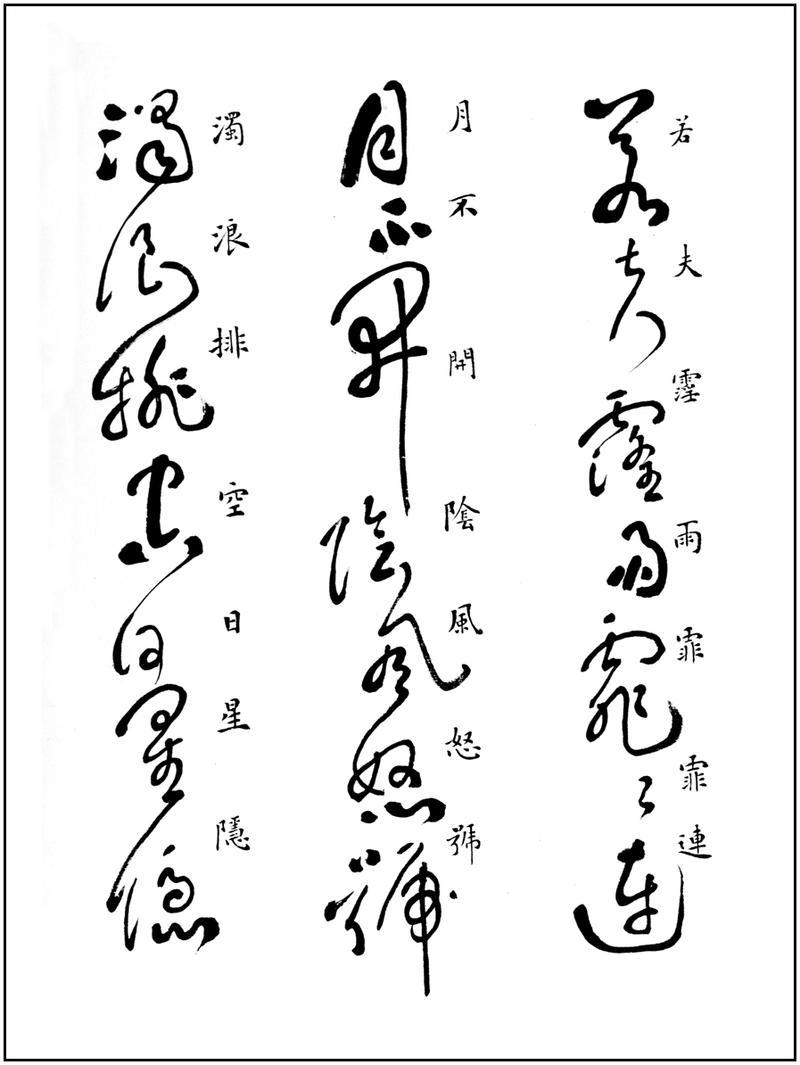 若夫霪雨霏霏連
若夫霪雨霏々連
月不開陰風怒號
月不開陰風怒號
濁浪排空日星隱
濁浪排空日星隱